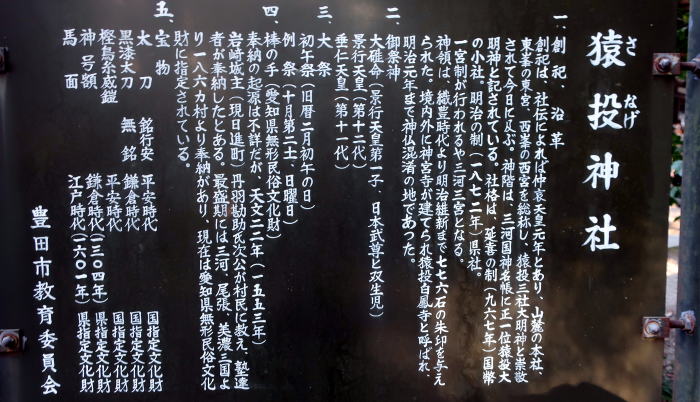 猿投神社
さなげ
一、創祀、沿革
創祀は、社伝によれば仲哀天皇元年とあり、山麓の本社、
東峯の東宮、西峯の西宮を総称し、猿投三社大明神と崇敬
されて今日に及ぶ。神階は、三河国神名帳に正一位猿投大
明神と記されている。社格は、延喜の制(九六七年)国幣
の小社。明治の制(一八七二年)県社。
一宮制が行われるや三河三宮となる。
神領は、織豊時代より明治維新まで七七六石の朱印を与え
られた。境内外に神宮寺が建てられ猿投白鳳寺と呼ばれ、
明治元年まで神仏混淆の地であった。
二、御祭神
大碓命(景行天皇第一子、日本武尊と双生児)
景行天皇(第十二代)
垂仁天皇(第十一代)
三、大祭
初午祭(旧暦二月初午の日)
例祭(十月第二土、日曜日)
四、棒の手(愛知県無形民俗文化財)
奉納の起源は不詳だが、天文二二年(一五五三年)
岩崎城主(現日進町)丹羽勘助氏次公が村民に教え、塾達
者が奉納したとある。最盛期には三河、尾張、美濃三国よ
り一八六カ村より奉納があり、現在は愛知県無形民俗文化
財に指定されている。
五、宝物
太刀 銘行安 平安時代 国指定文化財
黒漆太刀 無銘 鎌倉時代 国指定文化財
樫鳥糸威鎧 平安時代 国指定文化財
神号額 鎌倉時代(一三〇四年) 県指定文化財
馬面 江戸時代(一六〇一年) 県指定文化財
豊田市教育委員会